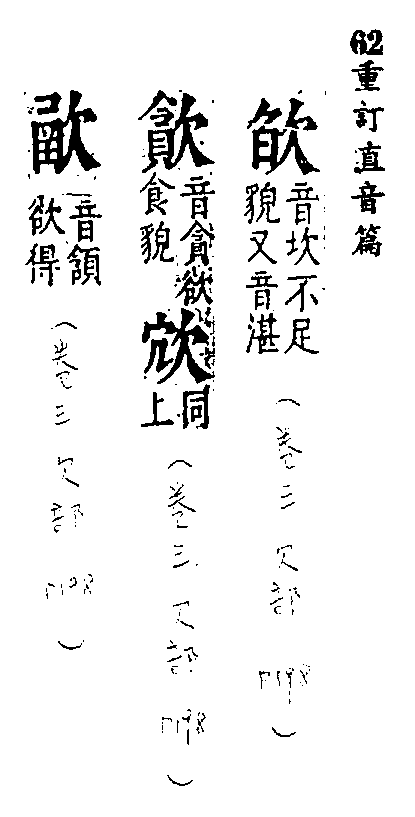 62重訂直音篇
欿
音坎不足
貌又音湛
(卷三 欠部 P198)
音貪欲
食貌
同
上
(卷三 欠部 P198)
音頷
欲得
(卷三 欠部 P198)